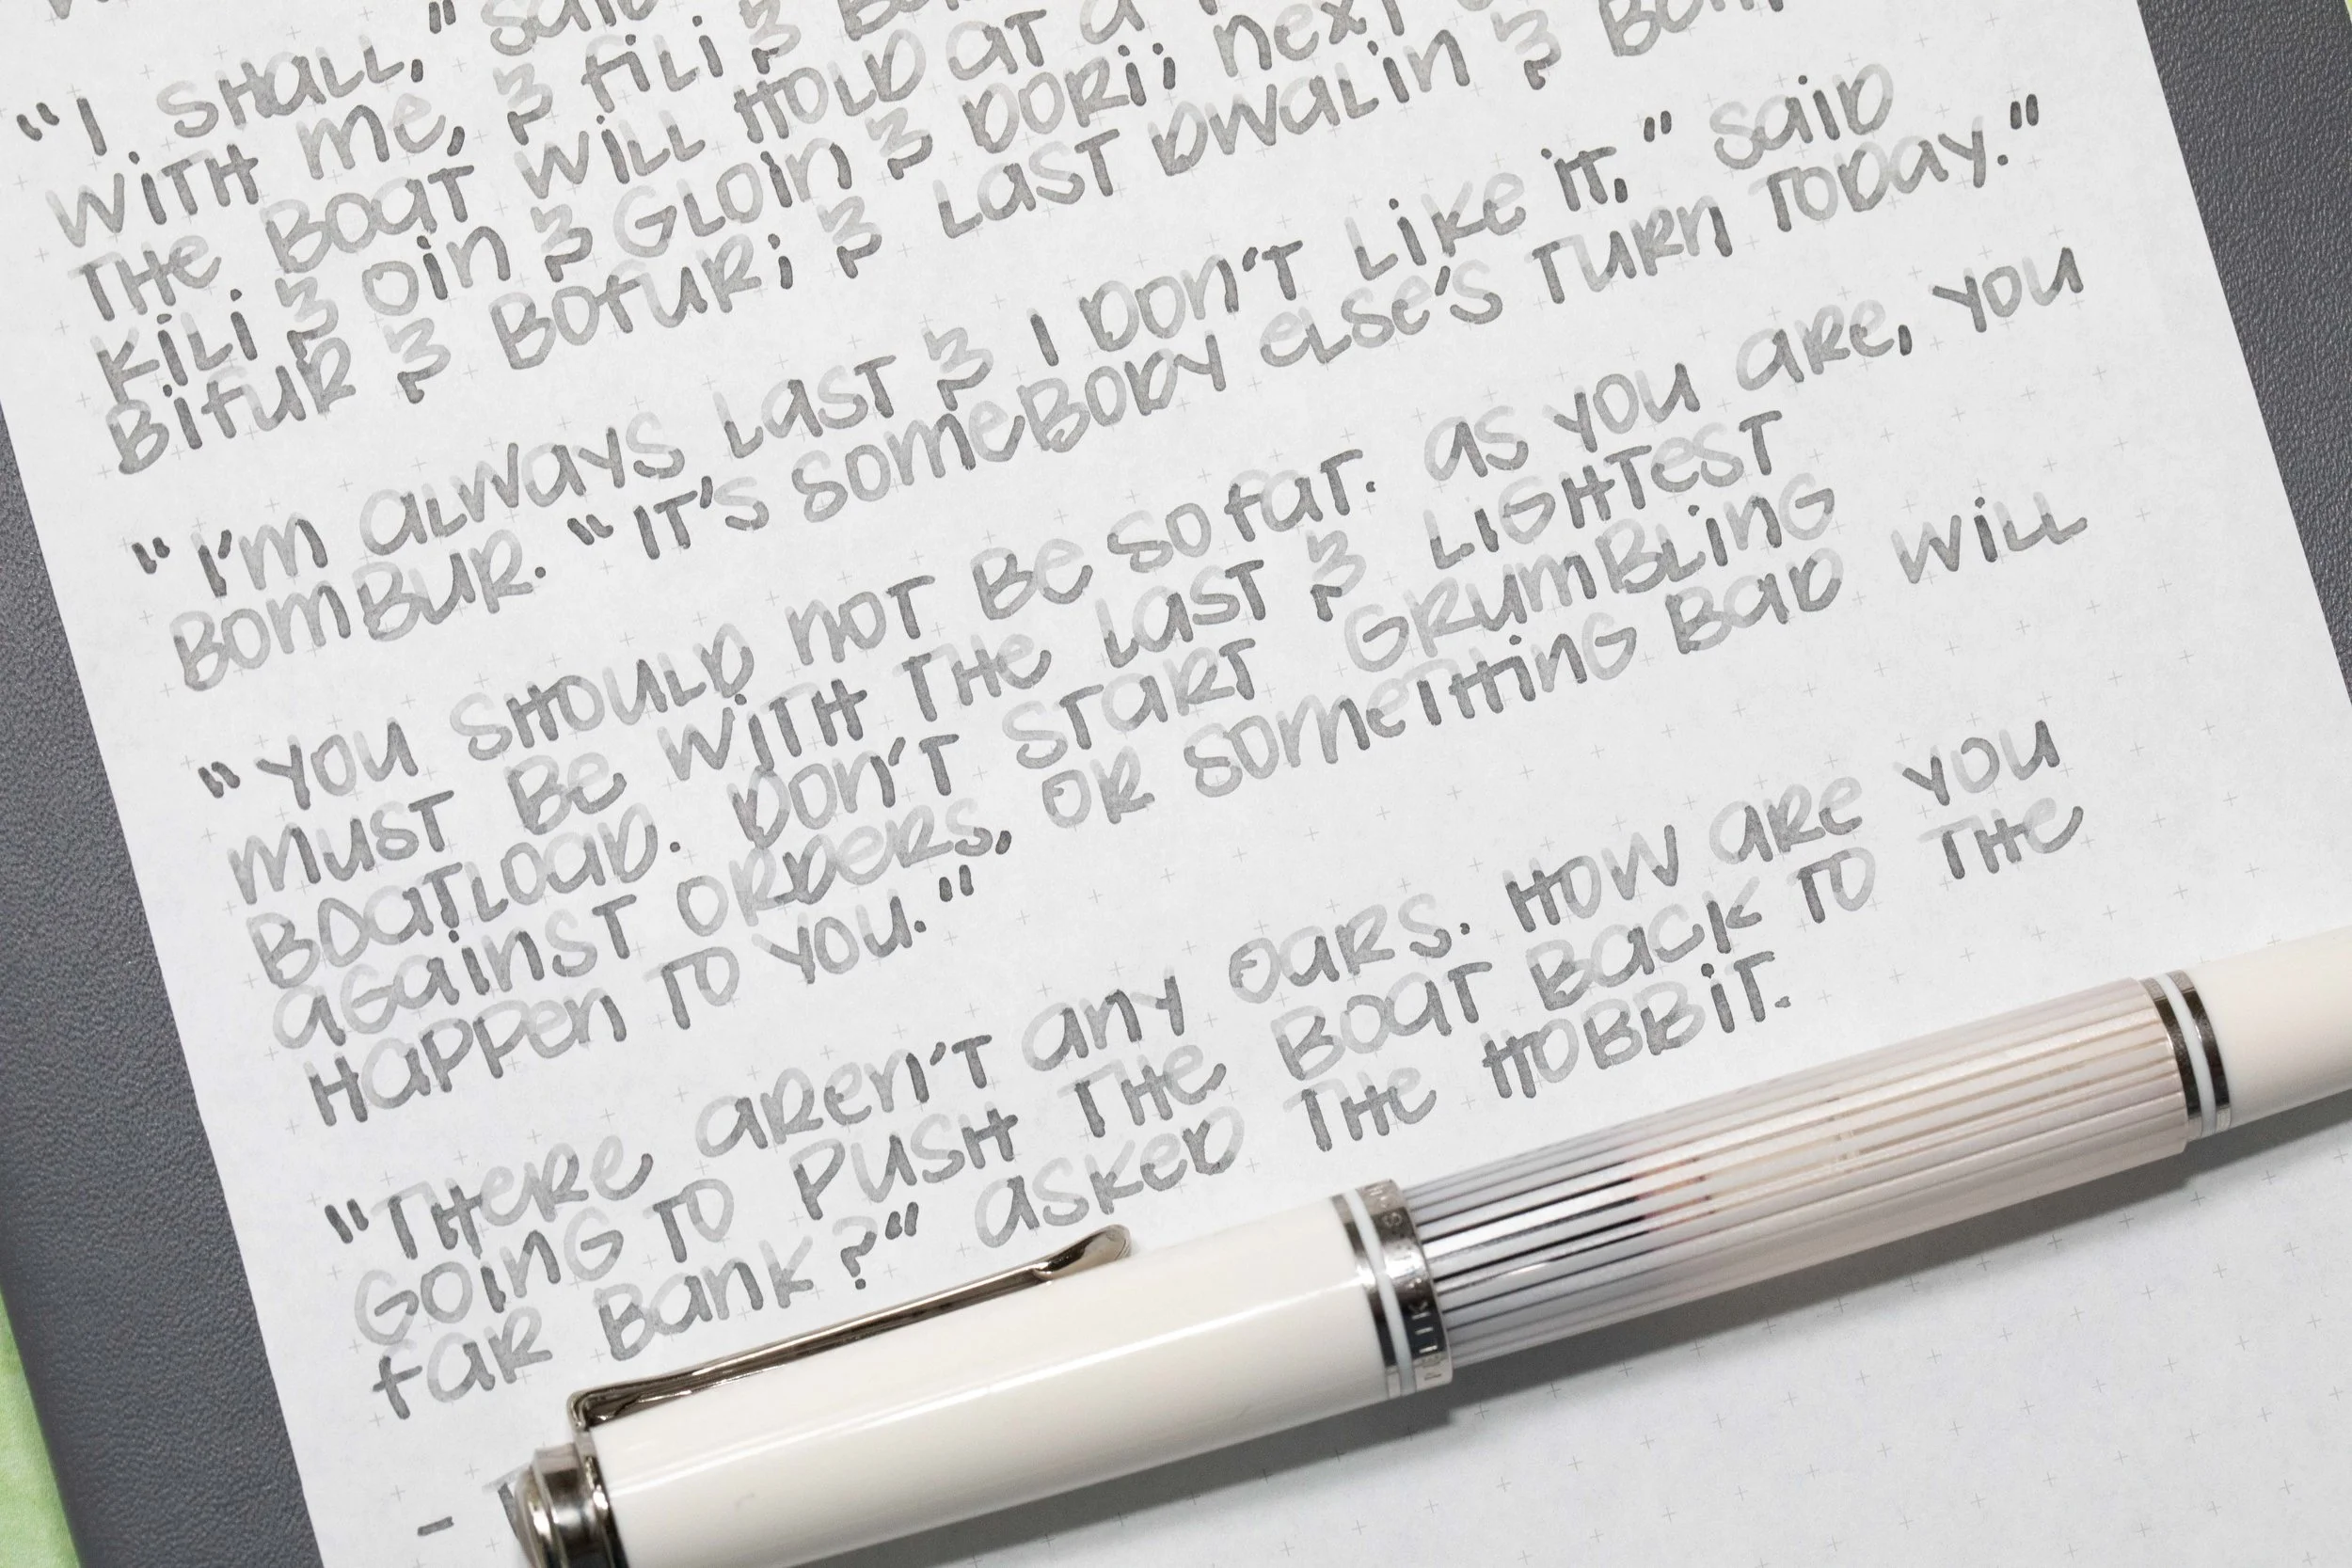 "I SHALL," Said
WITH Me, & fiLi &
THe BOaT WiLL HOLD aT a
KiLi & Oin & GLOin & DORi; nexT
BifuR & BOfuR; & LaST DWaLin &
"I'm aLWayS LaST & I DOn'T Like iT," SaiD
BOmBuR. "IT'S SOmeBODy eLSe'S TuRn TODay."
"YOu SHOuLD nOT Be SO faT. aS yOu aRe, yOu
muST Be WiTH THe LaST & LiGHTeST
BOaTLOaD. DOn'T STaRT GRumBLinG
aGainST ORDeRS, OR SOmeTHinG BaD WiLL
HaPPen TO yOu."
"THeRe aRen'T any OaRS. HOW aRe yOu
GOinG TO PuSH THe BOaT BaCK TO THe
faR Bank?" aSkeD THe HOBBiT.
-
PELIK